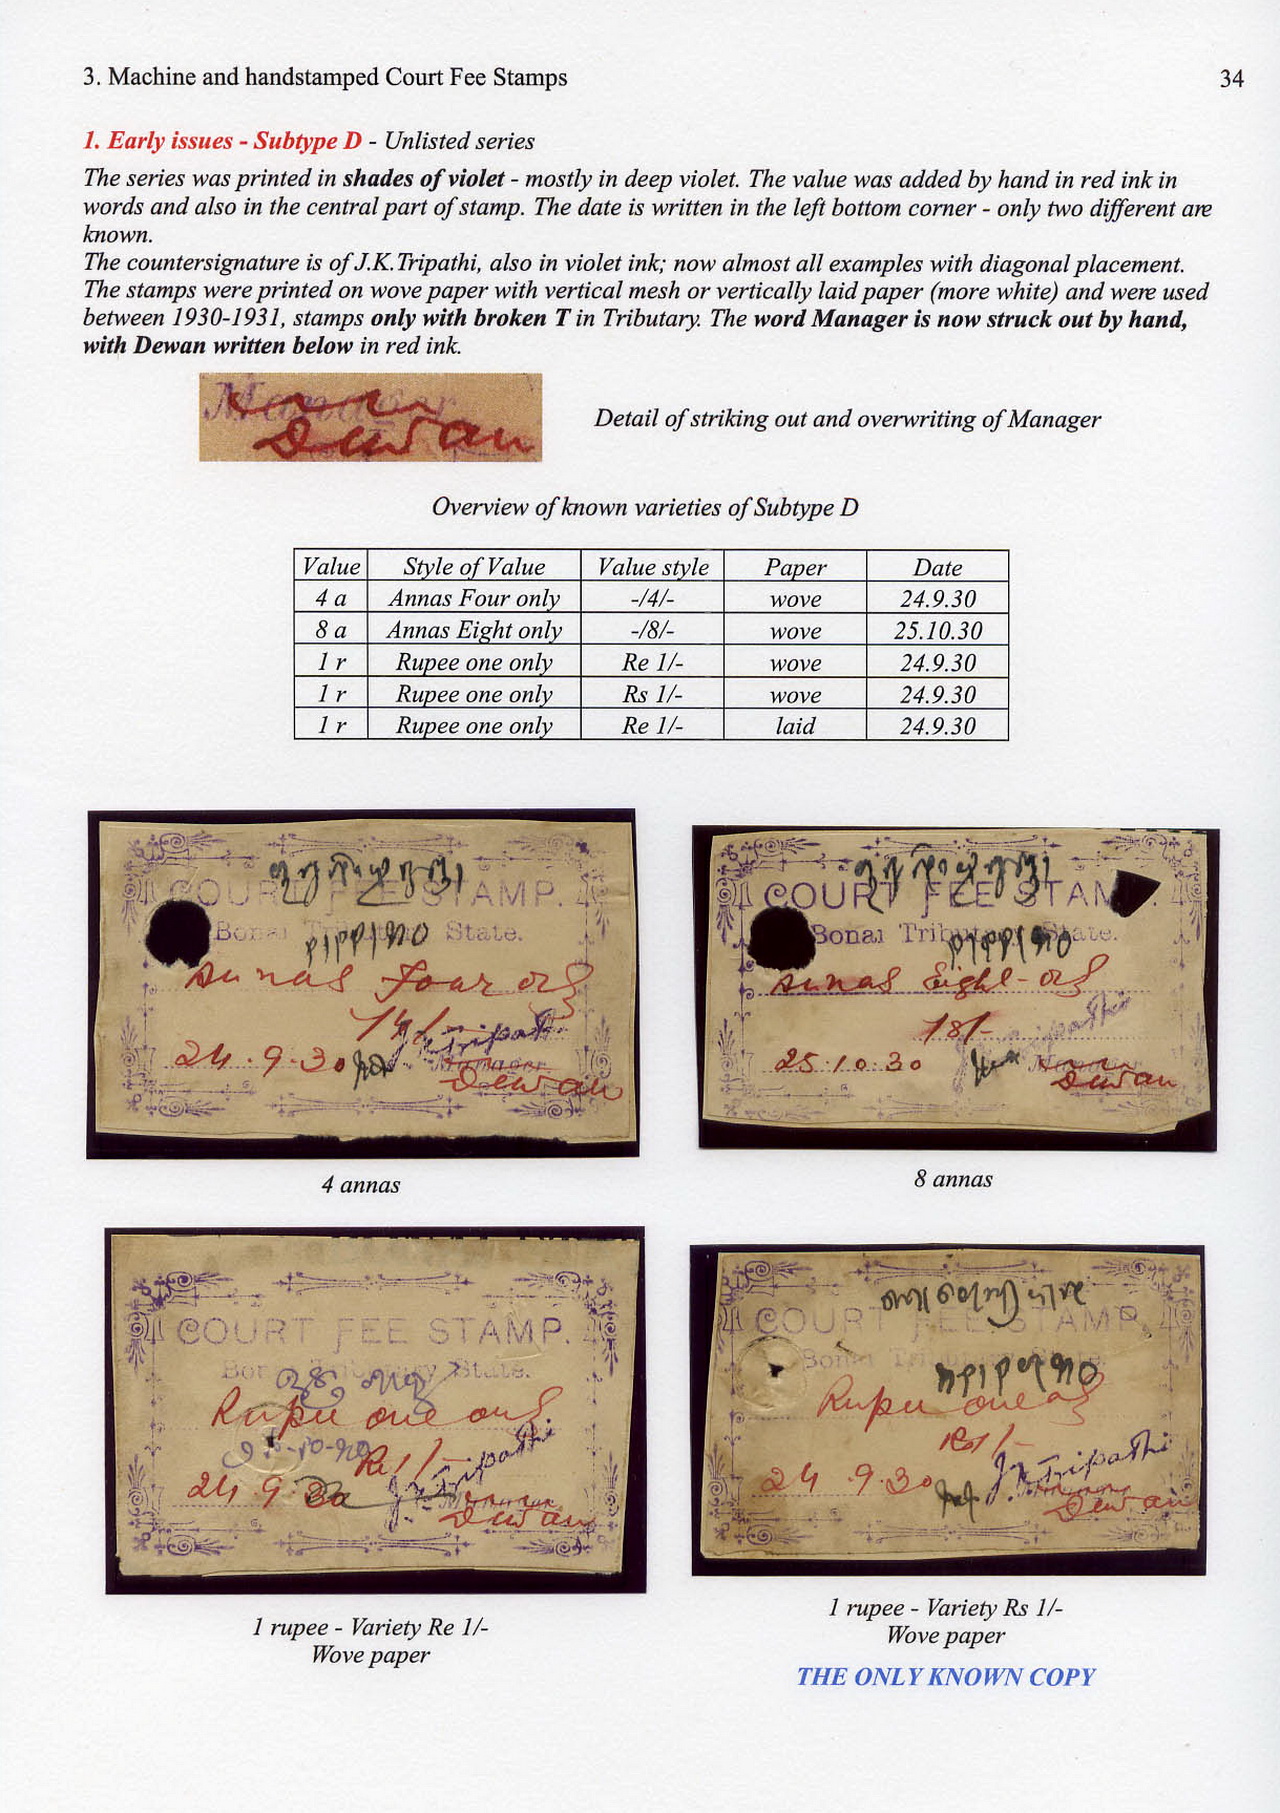 3. Machine and handstamped Court Fee Stamps
34
1. Early issues - Subtype D - Unlisted series
The series was printed in shades of violet - mostly in deep violet. The value was added by hand in red ink in
words and also in the central part of stamp. The date is written in the left bottom corner - only two different are
known.
The countersignature is of J.K.Tripathi, also in violet ink; now almost all examples with diagonal placement.
The stamps were printed on wove paper with vertical mesh or vertically laid paper (more white) and were used
between 1930-1931, stamps only with broken T in Tributary. The word Manager is now struck out by hand,
with Dewan written below in red ink.
Manager
Dewan
Detail of striking out and overwriting of Manager
Overview of known varieties of Subtype D
Value Style of Value Value style Paper Date
4 a Annas Four only -/4/- wove 24.9.30
8 a Annas Eight only -/8/- wove 25.10.30
1 r Rupee one only Re 1/- wove 24.9.30
1 r Rupee one only Rs 1/- wove 24.9.30
1 r Rupee one only Re 1/- laid 24.9.30
COURT FEE STAMP.
Bonai Tributary State.
Annas Four only
/4/-
24.9.30 J.K.Tripathi
Manager
Dewan
4 annas
COURT FEE STAMP.
Bonai Tributary State.
Annas Eight only
/8/-
25.10.30 J.K.Tripathi
Manager
Dewan
8 annas
COURT FEE STAMP.
Bonai Tributary State.
Rupee one only
Re 1/-
24.9.30 J.K.Tripathi
Manager
Dewan
1 rupee - Variety Re 1/-
Wove paper
COURT FEE STAMP.
Bonai Tributary State.
Rupee one only
Rs 1/-
24.9.30 J.K.Tripathi
Dewan
1 rupee - Variety Rs 1/-
Wove paper
THE ONLY KNOWN COPY